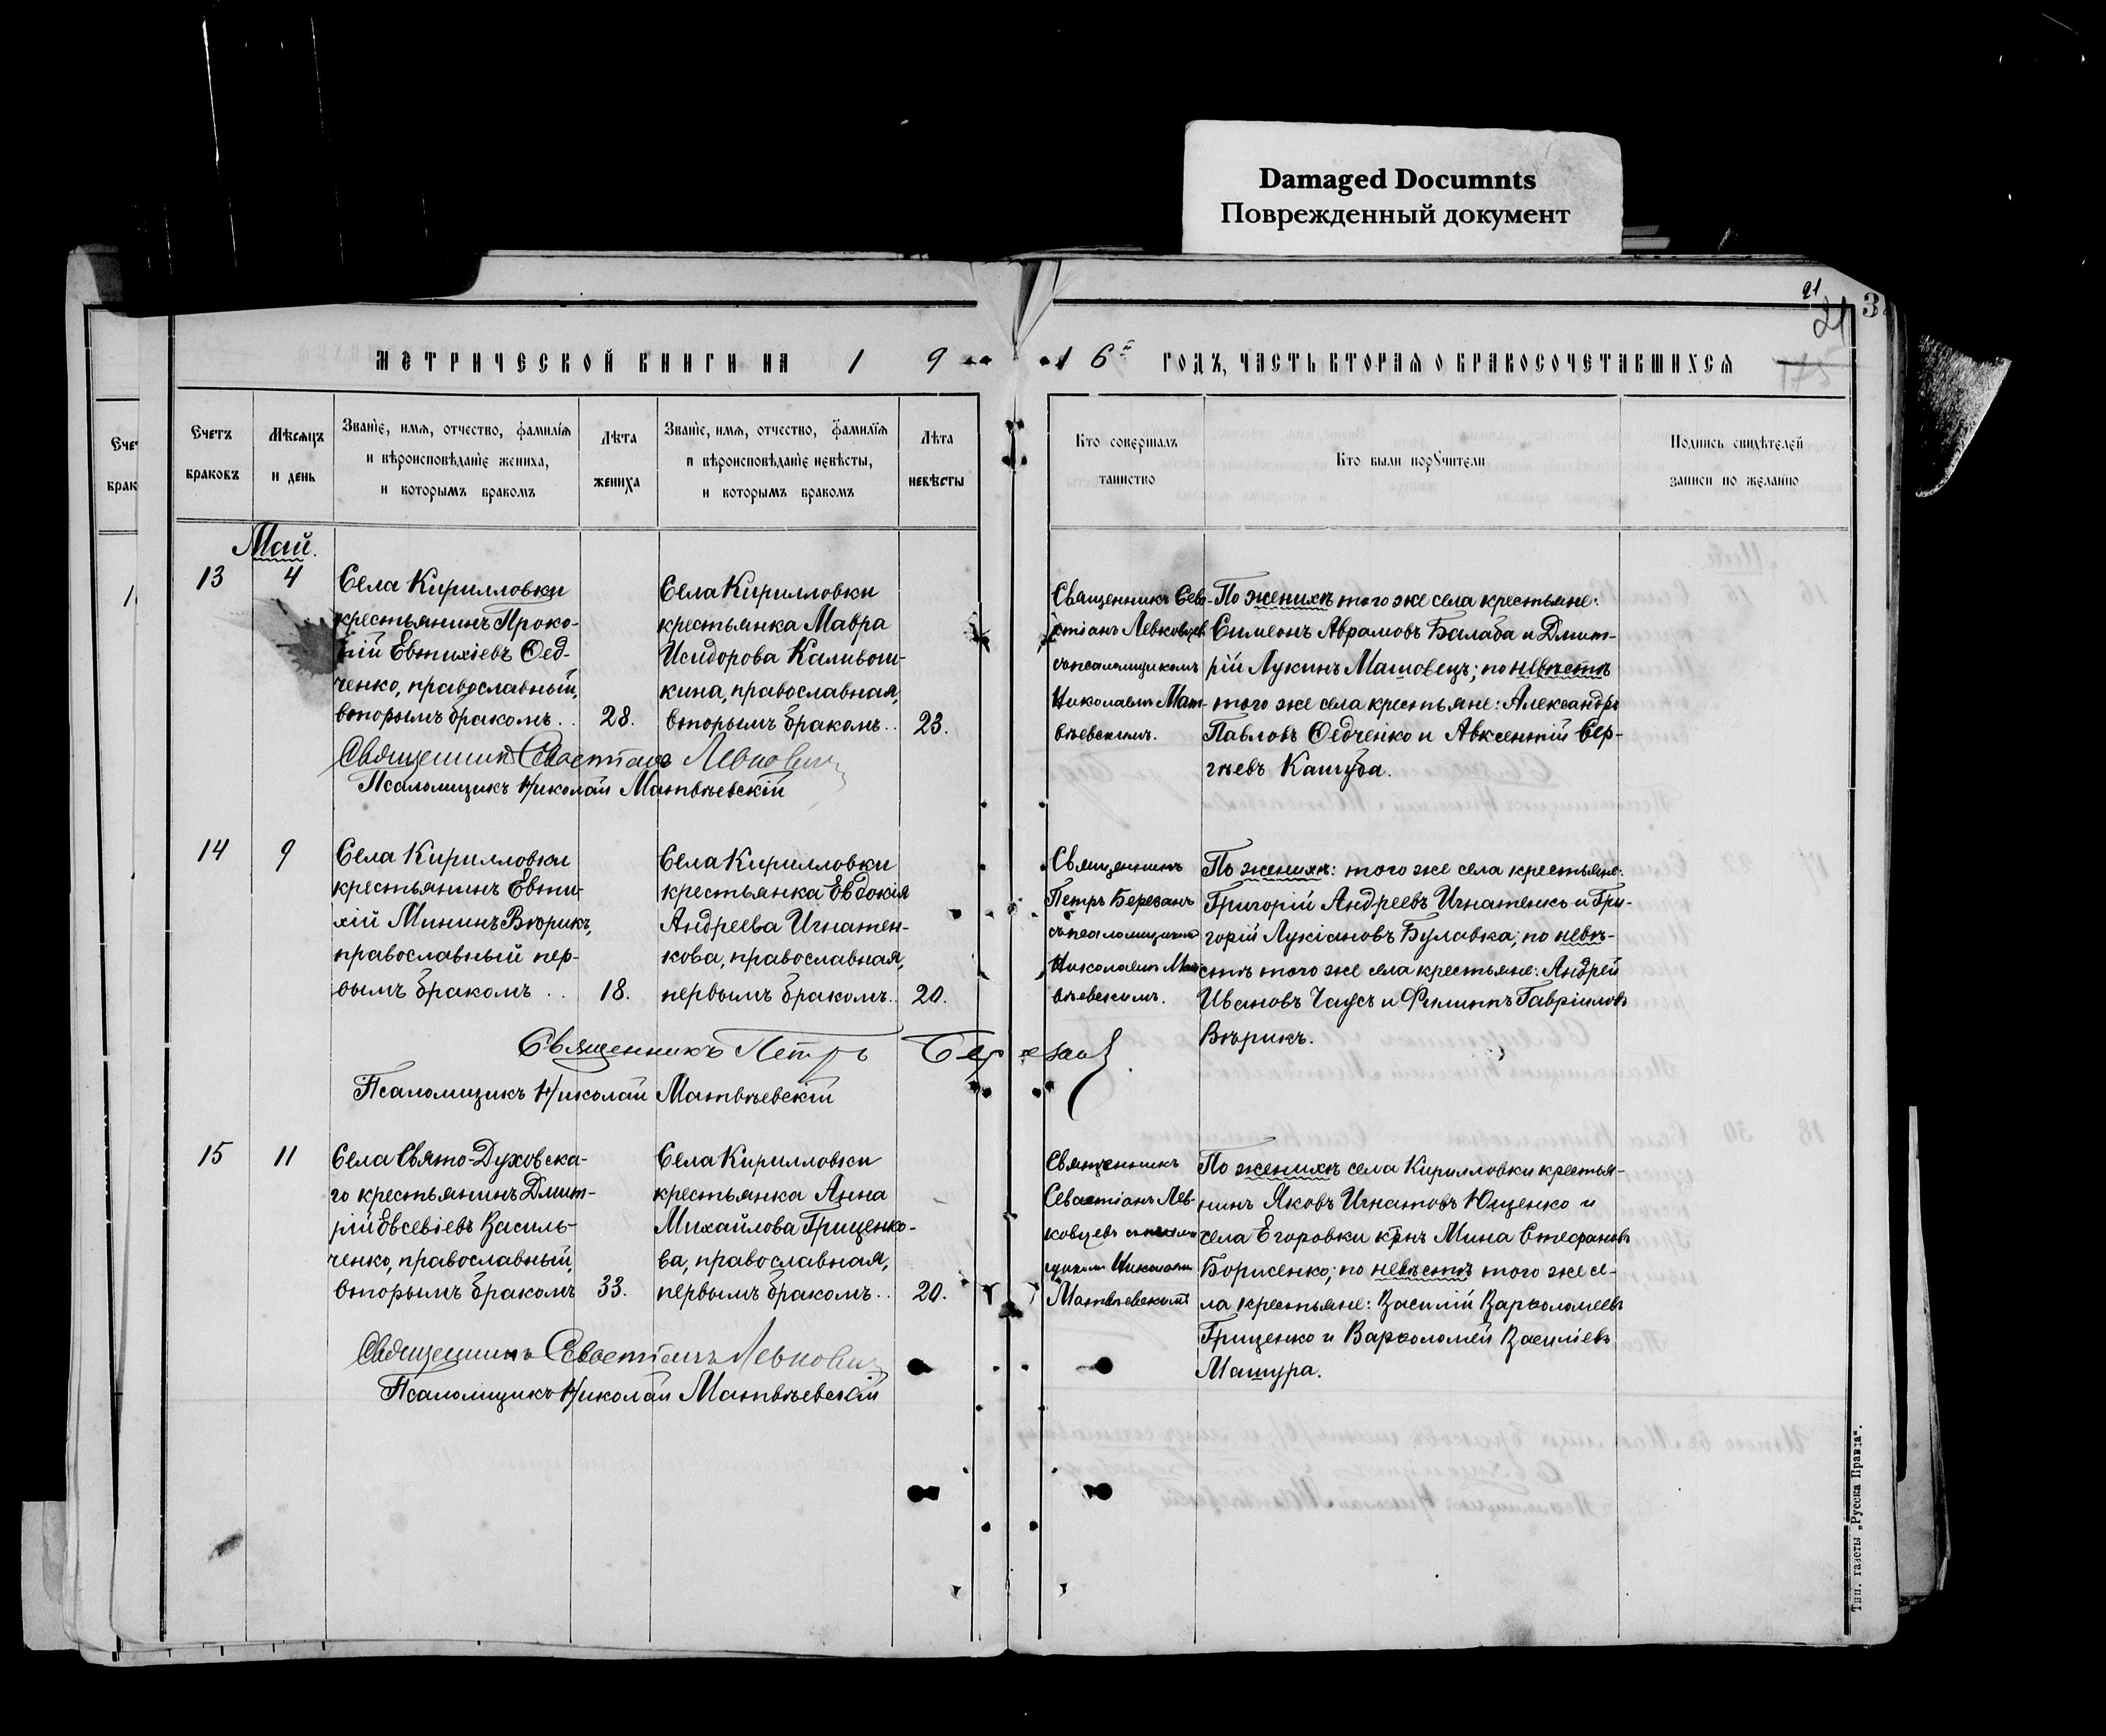 Damaged Documnts
Поврежденный документ
21
21
3
175
МЕТРИЧЕСКОЙ КНИГИ НА 1 9
1 6й ГОДЪ, ЧАСТЬ ВТОРАЯ О БРАКОСОЧЕТАВШИХСЯ
Счетъ
браковъ
Мѣсяцъ
и день
Званіе, имя, отчество, фамилія
и вѣроисповѣданіе жениха,
и которымъ бракомъ
Лѣта
жениха
Званіе, имя, отчество, фамилія
и вѣроисповѣданіе невѣсты,
и которымъ бракомъ
Лѣта
невѣсты
Кто совершалъ
таинство
Кто были поручители
Подпись свидѣтелей
записи по желанію
Май.
13
4
Села Кирилловки
крестьянинъ Проко-
пій Евтихіевъ Ѳед-
ченко, православный,
вторымъ бракомъ..
28.
Села Кирилловки
крестьянка Мавра
Исидорова Каливош-
кина, православная,
вторымъ бракомъ..
23.
Священникъ Сева-
стіанъ Левковцевъ
съ псаломщикомъ
Николаемъ Мат-
вѣевскимъ.
По женихѣ того же села крестьяне:
Симеонъ Аврамовъ Балаба и Дмит-
рій Лукинъ Машовецъ; по невѣстѣ
того же села крестьяне: Александръ
Павловъ Ѳедченко и Авксентій Сер-
гѣевъ Кашуба.
Священникъ Севастіанъ Левковцевъ
Псаломщикъ Николай Матвѣевскій
14
9
Села Кирилловки
крестьянинъ Евти-
хій Мининъ Вѣрикъ,
православный пер-
вымъ бракомъ..
18.
Села Кирилловки
крестьянка Евдокія
Андреева Игнатен-
кова, православная,
первымъ бракомъ..
20.
Священникъ
Петръ Березанъ
съ псаломщикомъ
Николаемъ Мат-
вѣевскимъ.
По женихѣ: того же села крестьяне:
Григорій Андреевъ Игнатенко и Гри-
горій Лукіановъ Булавка; по невѣ-
стѣ того же села крестьяне: Андрей
Ивановъ Чаусъ и Филиппъ Гавріиловъ
Вѣрикъ.
Священникъ Петръ Березанъ
Псаломщикъ Николай Матвѣевскій
15
11
Села Свято-Духовска-
го крестьянинъ Дмит-
рій Евсевіевъ Василь-
ченко, православный,
вторымъ бракомъ
33.
Села Кирилловки
крестьянка Анна
Михайлова Грищенко-
ва, православная,
первымъ бракомъ..
20.
Священникъ
Севастіанъ Лев-
ковцевъ съ псалом-
щикомъ Николаемъ
Матвѣевскимъ
По женихѣ села Кирилловки крестья-
нинъ Яковъ Игнатовъ Ющенко и
села Егоровки крнъ Мина Стефановъ
Борисенко; по невѣстѣ того же се-
ла крестьяне: Василій Варѳоломеевъ
Грищенко и Варѳоломей Василіевъ
Машура.
Священникъ Севастіанъ Левковцевъ
Псаломщикъ Николай Матвѣевскій
Тип. газеты „Русская Правда".